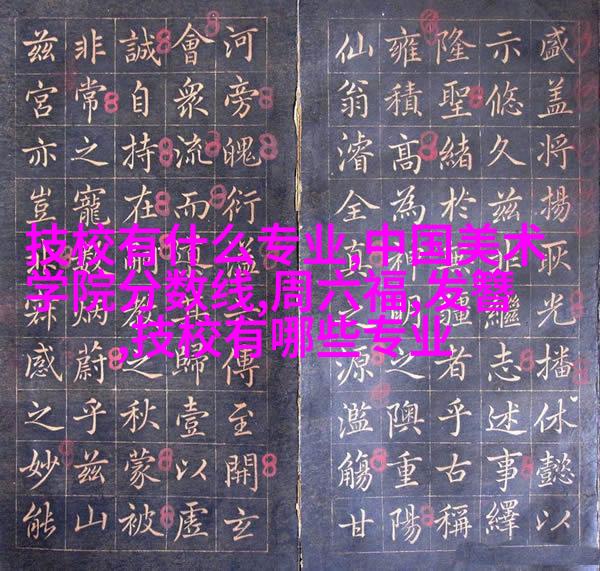 技校有什么专业,中国美术
学院分数线,周六福,发簪
,技校有哪些专业
盛盖将揚耿光播休懿以
示悠久兹繼志述事繹
隆聖緒於疆者乎古稱
雍積高為神明之隩重陽
仙翁濬全真之源濫觴甘
河旁魄衍傳至開玄
會衆流而歸壹以虚
誠自持在教之秋蒙被
非常之寵數炳蔚乎兹山
兹宮亦豈感之妙能